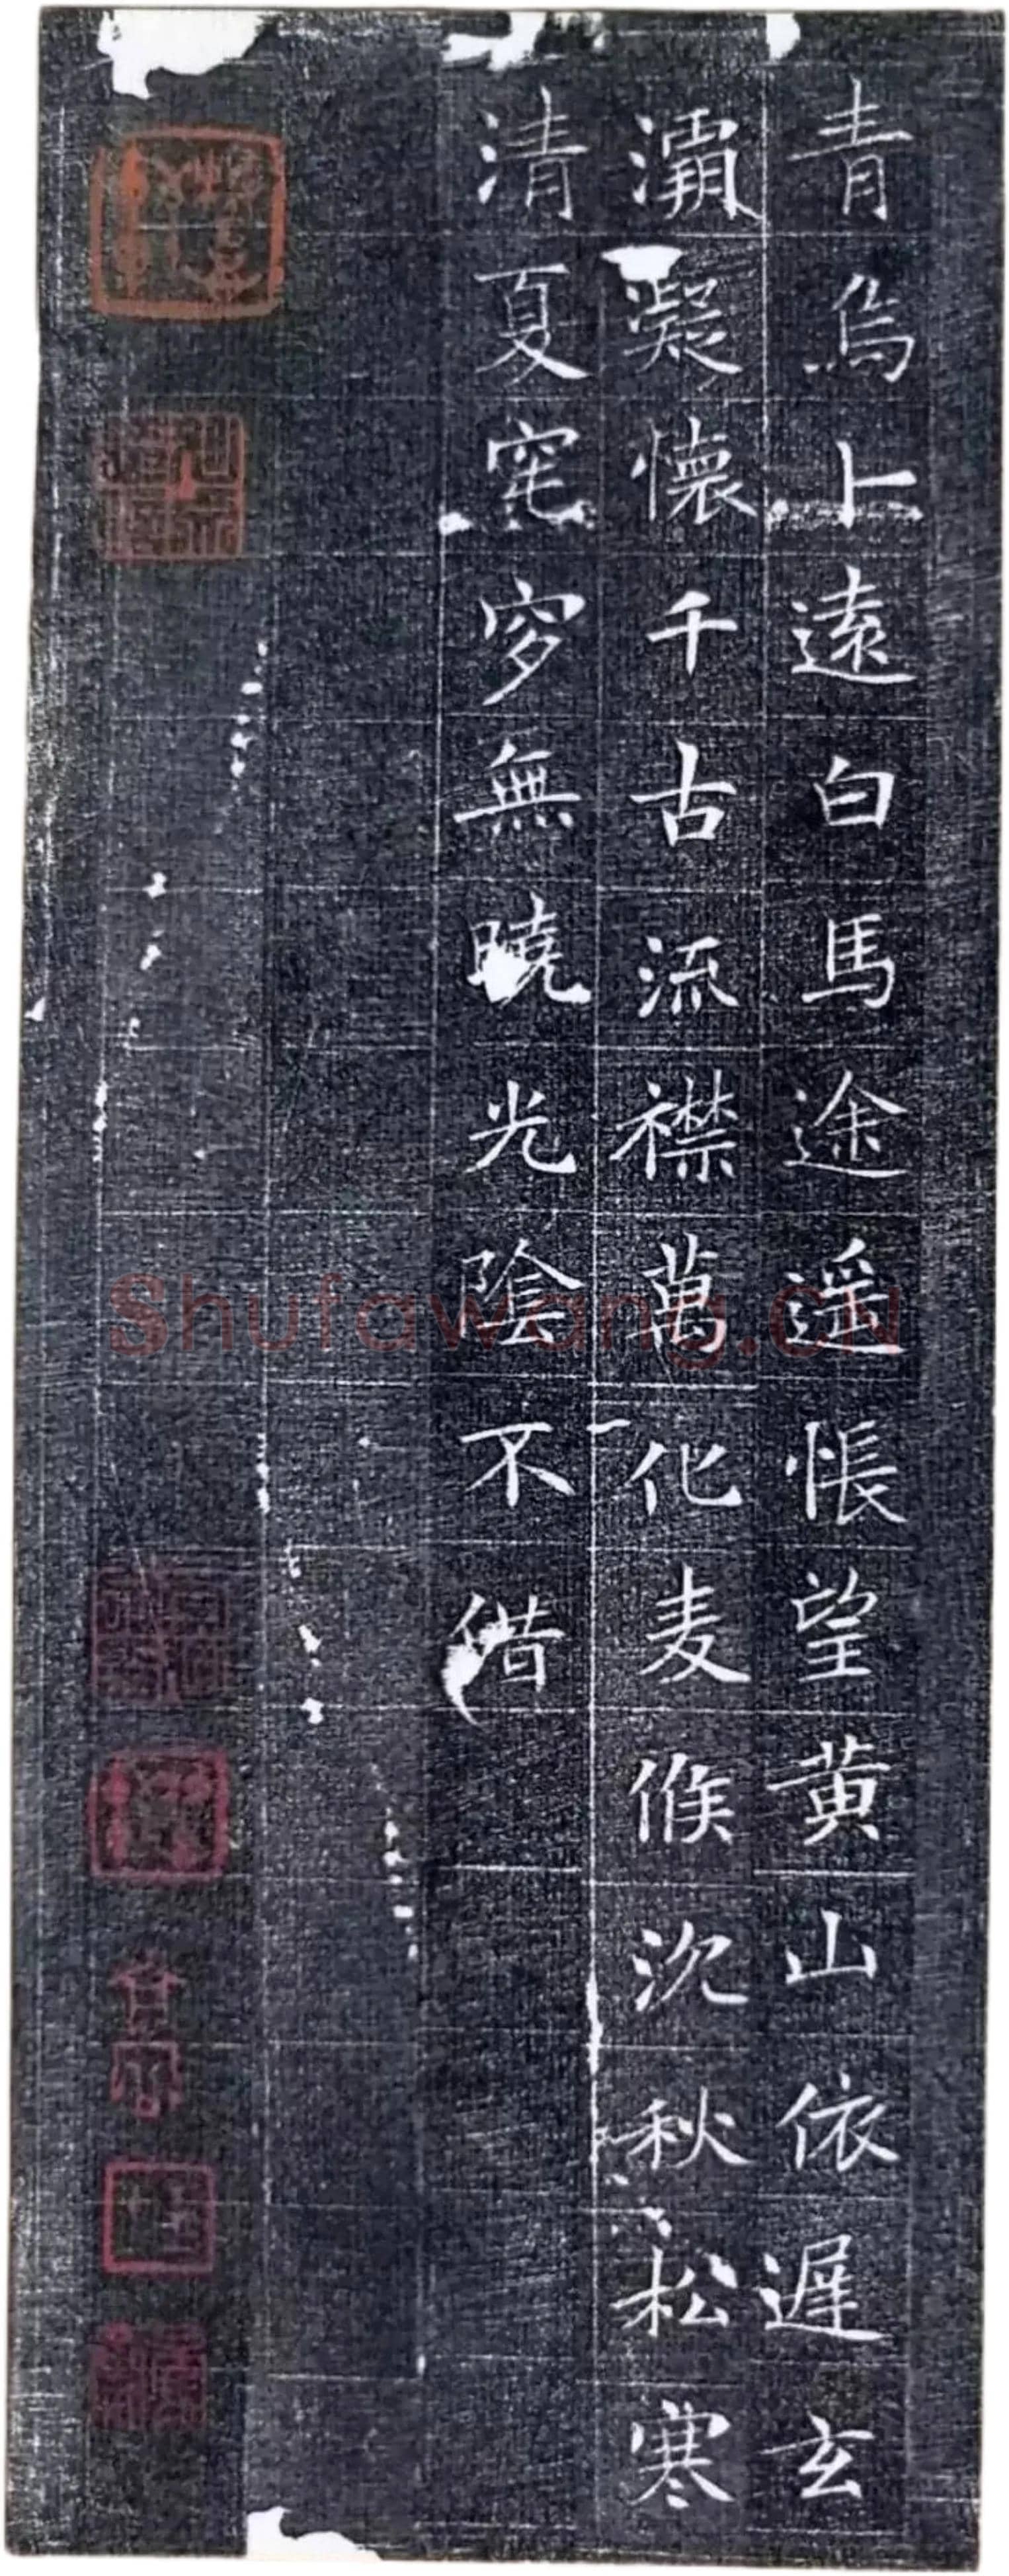 青烏上遠白馬途遥悵望黄山依遲玄
灞凝懷千古流襟萬化麦候沈秋松寒
清夏窀穸無曉光陰不借
Shufawang.CN